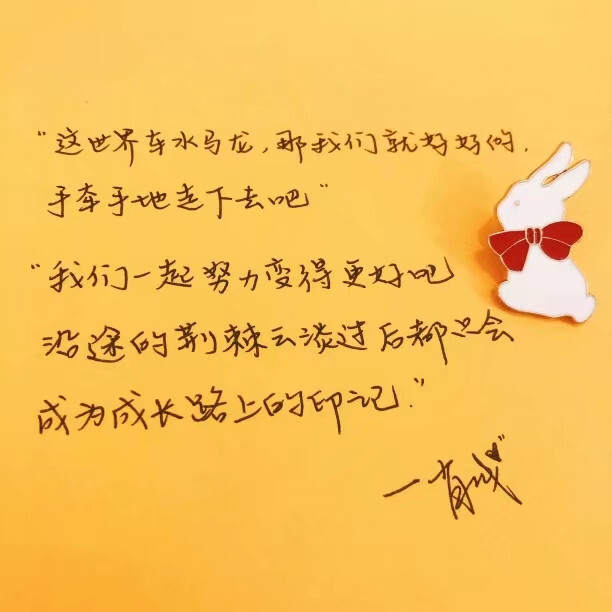 "这世界车水马龙,那我们就好好的,
手牵手地走下去吧"
"我们一起努力变得更好吧
沿途的荆棘云淡过后都只会
成为成长路上的印记."
一